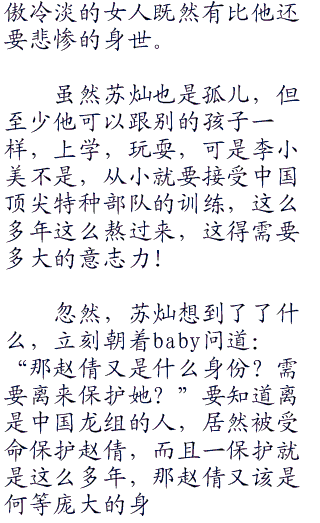 傲冷淡的女人既然有比他还
要悲惨的身世。
虽然苏灿也是孤儿，但
至少他可以跟别的孩子一
样，上学，玩耍，可是李小
美不是，从小就要接受中国
顶尖特种部队的训练，这么
多年这么熬过来，这得需要
多大的意志力！
忽然，苏灿想到了了什
么，立刻朝着baby问道：
“那赵倩又是什么身份？需
要离来保护她？”要知道离
是中国龙组的人，居然被受
命保护赵倩，而且一保护就
是这么多年，那赵倩又该是
何等庞大的身